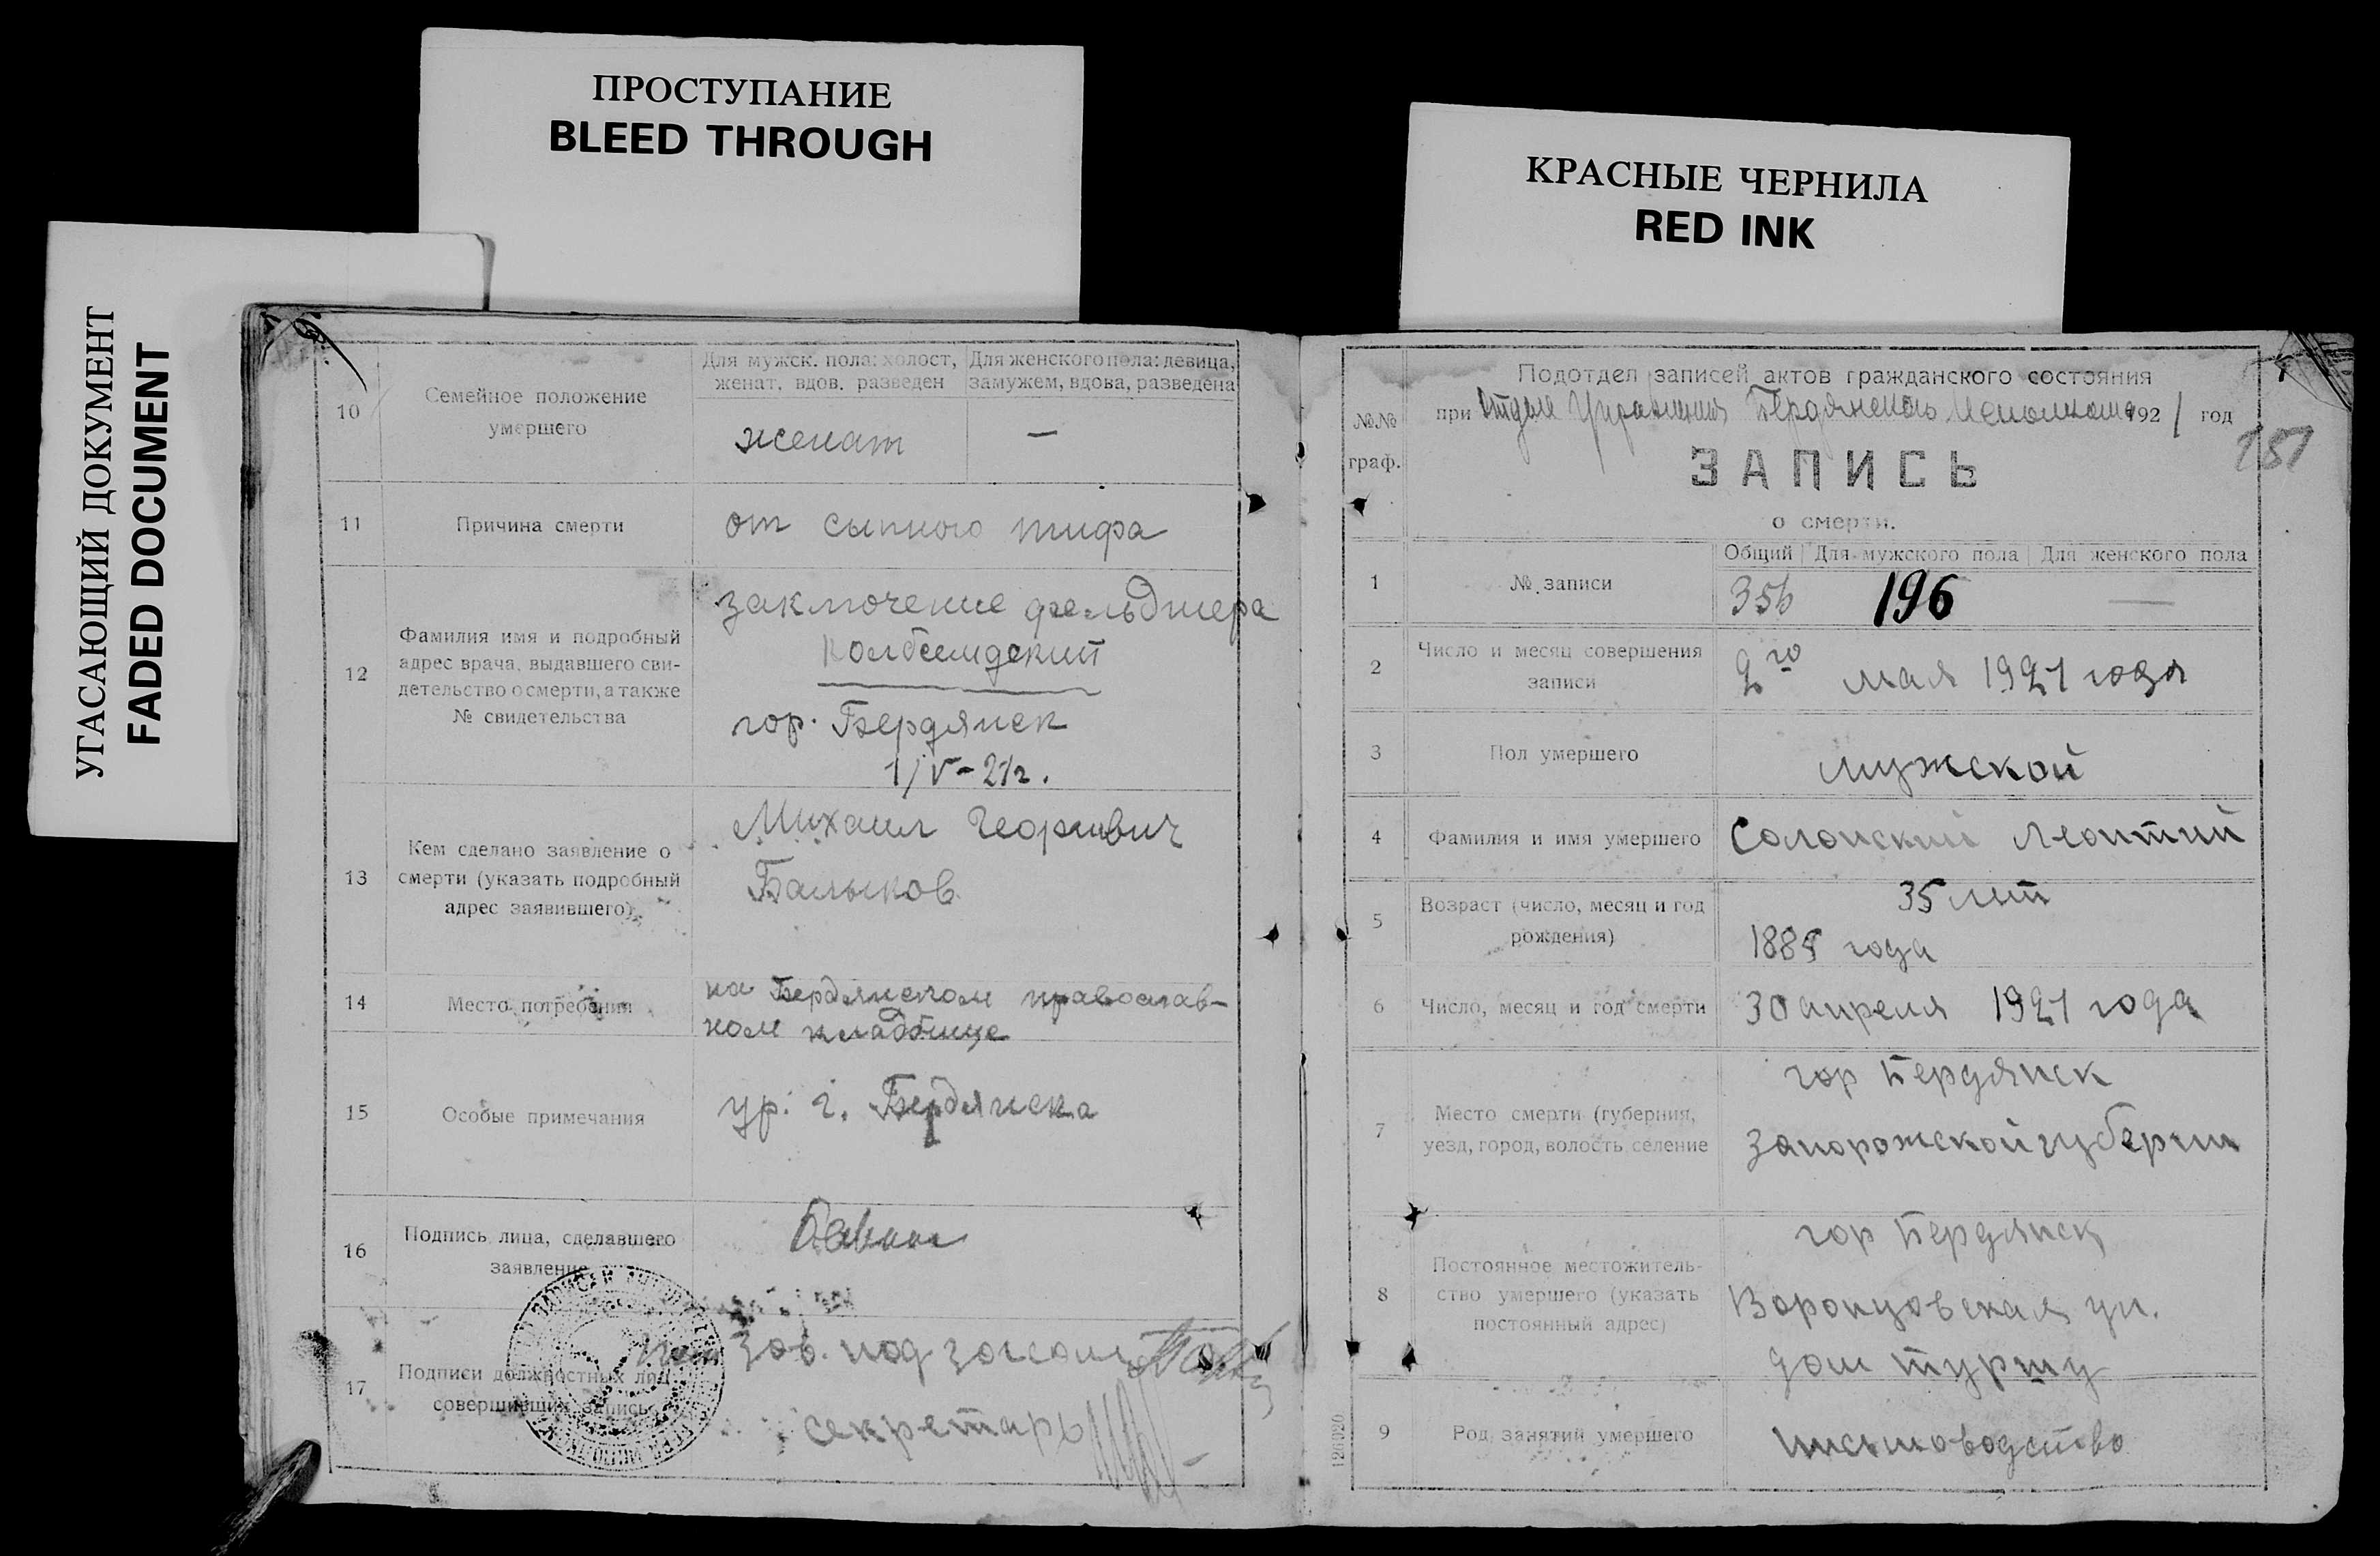 ПРОСТУПАНИЕ
BLEED THROUGH
КРАСНЫЕ ЧЕРНИЛА
RED INK
УГАСАЮЩИЙ ДОКУМЕНТ
FADED DOCUMENT
10
Семейное положение
умершего
Для мужск. пола: холост,
женат, вдов, разведен
Для женского пола: девица,
замужем, вдова, разведена
женат
—
11
Причина смерти
от сыпного тифа
12
Фамилия имя и подробный
адрес врача, выдавшего сви-
детельство о смерти, а также
№ свидетельства
заключение фельдшера
гор. Бердянск
1/V-21г.
13
Кем сделано заявление о
смерти (указать подробный
адрес заявившего)
Михаил Георгиевич
Балыков
14
Место погребения
на Бердянском православ-
ном кладбище
15
Особые примечания
ур. г. Бердянска
16
Подпись лица, сделавшего
заявление
17
Подписи должностных лиц
совершивших запись
Зав. под загсом
секретарь
№№
граф.
Подотдел записей актов гражданского состояния
при Отделе Управления Бердянского Исполкома 1921 год
151
ЗАПИСЬ
о смерти.
1
№ записи
Общий
Для мужского пола
Для женского пола
356
196
—
2
Число и месяц совершения
записи
2го мая 1921 года
3
Пол умершего
мужской
4
Фамилия и имя умершего
Солонский Леонтий
5
Возраст (число, месяц и год
рождения)
35 лет
1885 года
6
Число, месяц и год смерти
30 апреля 1921 года
7
Место смерти (губерния,
уезд, город, волость, селение
гор Бердянск
Запорожской губернии
8
Постоянное местожитель-
ство умершего (указать
постоянный адрес)
гор Бердянск
Воронцовская ул.
дом
9
Род занятий умершего
письмоводство
126020